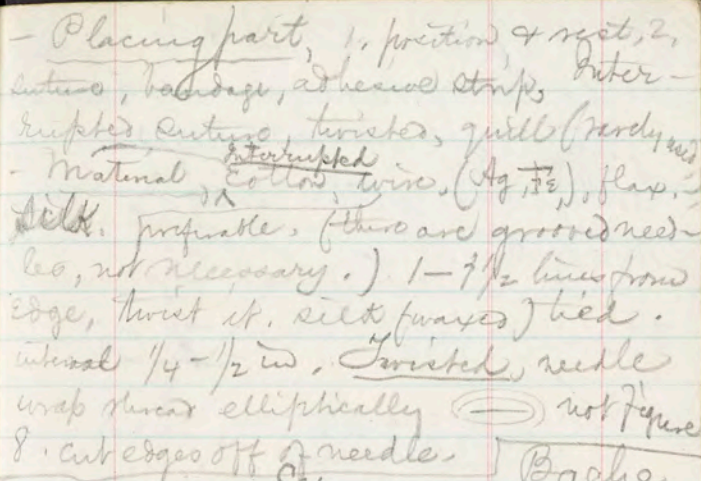 - Placing part, 1, position & rest, 2,
suture, bandage, adhesive strip, Inter-
rupted suture, twisted, quill (rarely used
- Material, Interrupted Cotton, wire, (Ag, Fe,), flax,
silk. preferable. (there are grooved need-
les, not necessary.) 1 - 3 1/2 lines from
edge, twist it. silk (waxed) tied.
interval 1/4 - 1/2 in. Twisted, needle
wrap thread elliptically not Figure
8. cut edges off of needle.